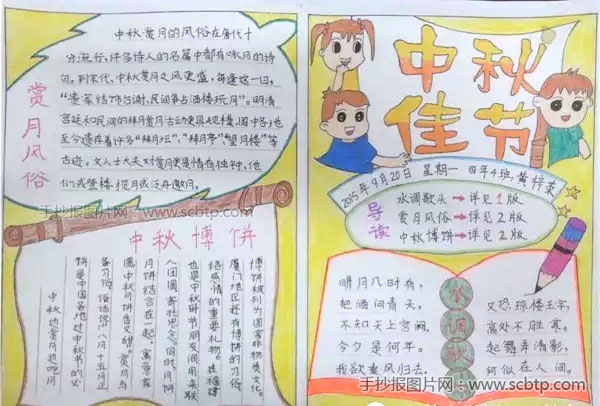 赏月风俗
中秋赏月的风俗在唐代十
分流行,许多诗人的名篇中都有咏月的诗
句。到宋代,中秋赏月之风更盛,每逢这一日,
“贵家结饰台榭,民间争占酒楼玩月”。明清
宫廷和民间的拜月赏月活动更具规模,国中各地
至今遗存着许多“拜月坛”,“拜月亭”,“望月楼”等
古迹。文人士大夫对赏月更是情有独钟,他
们或登楼揽月或泛舟邀月。
手抄报图片网:www.scbtp.com
中秋博饼
中秋边赏月边吃月
饼是中国各地过中秋节的必
备习俗。俗话说:“八月十五月正
圆,中秋月饼香又甜”。赏月与
月饼结合在一起,寓意家
人团圆,寄托思念。同时,月饼
也是中秋时节朋友间用来联
络感情的重要礼物。福建
厦门地区有博饼的习俗
博饼被列为国家非物质文化。
中秋
佳节
2015年9月20日 星期一 四年4班:黄梓荣
导读
水调歌头→详见1版
赏月风俗→详见2版
中秋博饼→详见2版
水调歌
明月几时有,
把酒问青天。
不知天上宫阙,
今夕是何年。
我欲乘风归去,
又恐琼楼玉宇,
高处不胜寒。
起舞弄清影,
何似在人间。
手抄报图片网:www.scbtp.com